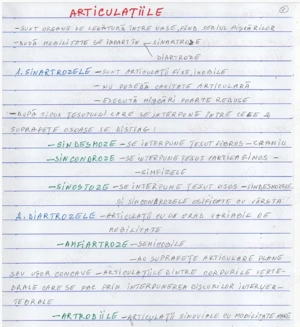 ARTICULAȚIILE
- SUNT ORGANE DE LEGĂTURĂ ÎNTRE OASE, FIIND SEDIUL MIȘCĂRILOR
- DUPĂ MOBILITATE SE ÎMPART ÎN - SINARTROZE
DIARTROZE
1. SINARTROZELE - SUNT ARTICULAȚII FIXE, IMOBILE
- NU POSEDĂ CAVITATE ARTICULARĂ
- EXECUTĂ MIȘCĂRI FOARTE REDUSE
- DUPĂ TIPUL ȚESUTULUI CARE SE INTERPUNE ÎNTRE CELE 2
SUPRAFEȚE OSOASE SE DISTING:
- SINDESMOZE - SE INTERPUNE ȚESUT FIBROS - CRANIU
- SINCONDROZE - SE INTERPUNE ȚESUT CARTILAGINOS -
- SIMFIZELE
- SINOSTOZE - SE INTERPUNE ȚESUT OSOS - SINDESMOZELE
ȘI SINCONDROZELE OSIFICATE CU VÂRSTA
2. DIARTROZELE - ARTICULAȚII CU UN GRAD VARIABIL DE
MOBILITATE
- AMFIARTROZE - SEMIMOBILE
- AU SUPRAFEȚE ARTICULARE PLANE
SAU UȘOR CONCAVE - ARTICULAȚIILE DINTRE CORPURILE VERTE-
BRALE CARE SE FAC PRIN INTERPUNEREA DISCURILOR INTERVER-
TEBRALE
- ARTRODIILE - ARTICULAȚII SINOVIALE CU MOBILITATE MARE